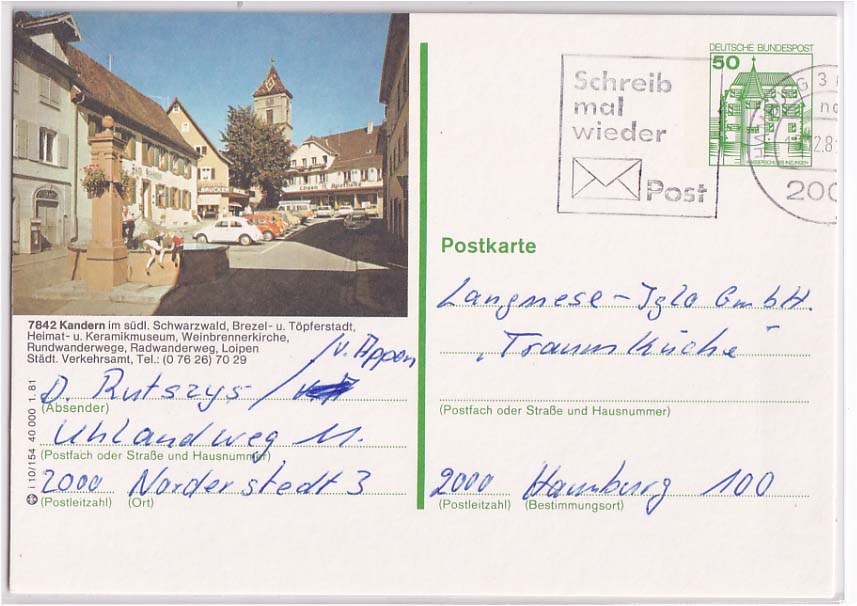 7842 Kandern im südl. Schwarzwald, Brezel- u. Töpferstadt,
Heimat- u. Keramikmuseum, Weinbrennerkirche,
Rundwanderwege, Radwanderweg, Loipen
Städt. Verkehrsamt, Tel.: (0 76 26) 70 29
/v. Appen
D. Rutszys /
(Absender)
Uhlandweg 11.
(Postfach oder Straße und Hausnummer)
2000 Norderstedt 3
(Postleitzahl) (Ort)
i 10/154 40 000 1.81
DEUTSCHE BUNDESPOST
50
WASSERSCHLOSS INZLINGEN
Schreib
mal
wieder
Post
Postkarte
Langnese-Iglo GmbH.
"Traumküche"
(Postfach oder Straße und Hausnummer)
2000 Hamburg 100
(Postleitzahl) (Bestimmungsort)